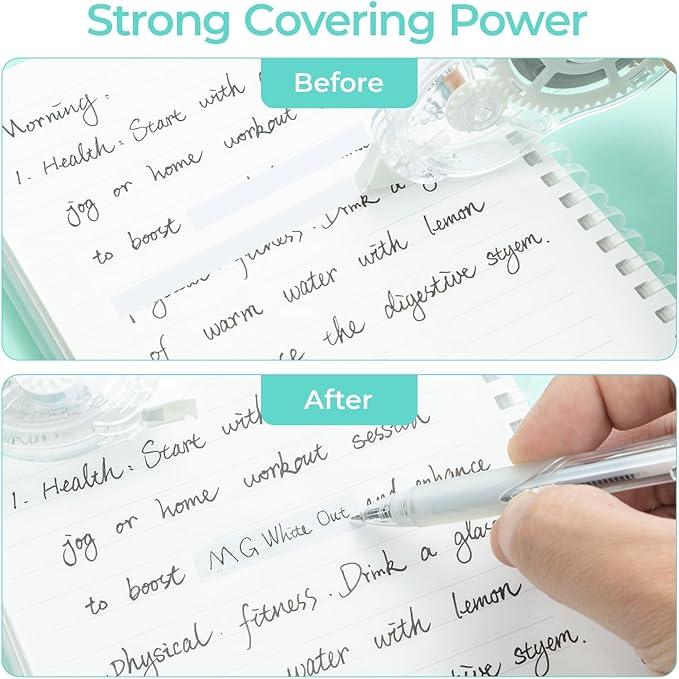 Strong Covering Power
Before
Morning:
1. Health: Start with
jog or home workout
to boost
fitness. Drink a
of warm water with lemon
the digestive styem.
After
1. Health: Start with
jog or home workout session
to boost MG White Out and enhance
physical. fitness. Drink a glass
water with lemon
styem.